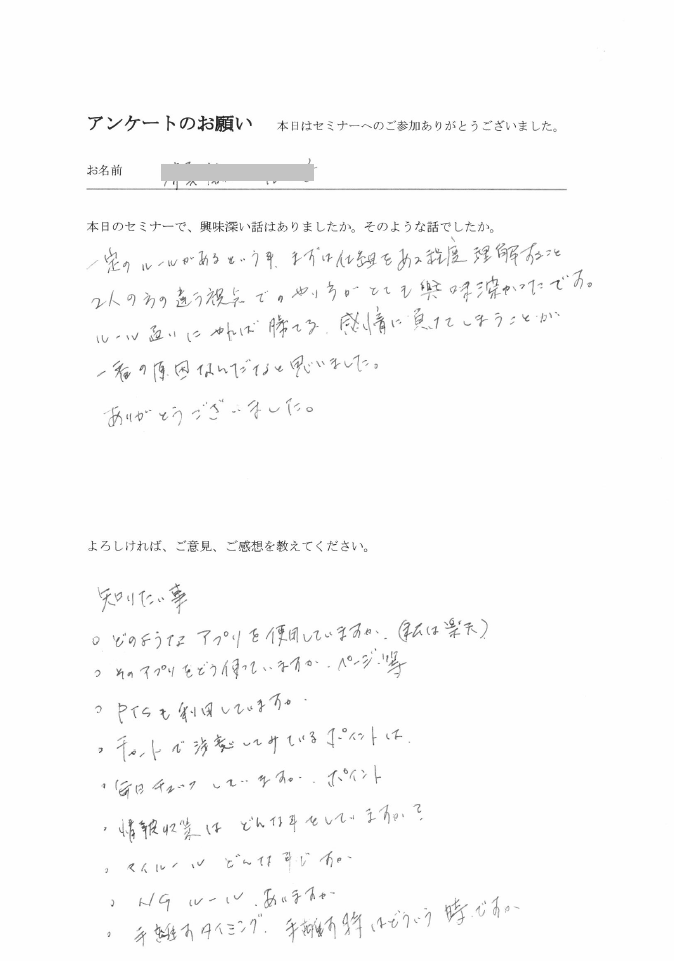 アンケートのお願い　本日はセミナーへのご参加ありがとうございました。
お名前
本日のセミナーで、興味深い話はありましたか。そのような話でしたか。
一定のルールがあるという事、まずは仕組をある程度理解すること
2人の方の違う視点でのやり方がとても興味深かったです。
ルール通りにやれば勝てる、感情に負けてしまうことが
一番の原因なんだなと思いました。
ありがとうございました。
よろしければ、ご意見、ご感想を教えてください。
知りたい事
○ どのようなアプリを使用していますか。(私は楽天)
○ そのアプリをどう使っていますか。ページ等
○ PTSも利用していますか。
○ チャートで注意してみているポイントは、
○ 毎日チェックしていますか、ポイント
○ 情報収集はどんな事をしていますか？
○ マイルールどんな事ですか
○ NGルール、ありますか
○ 手離すタイミング、手離す時はどういう時ですか